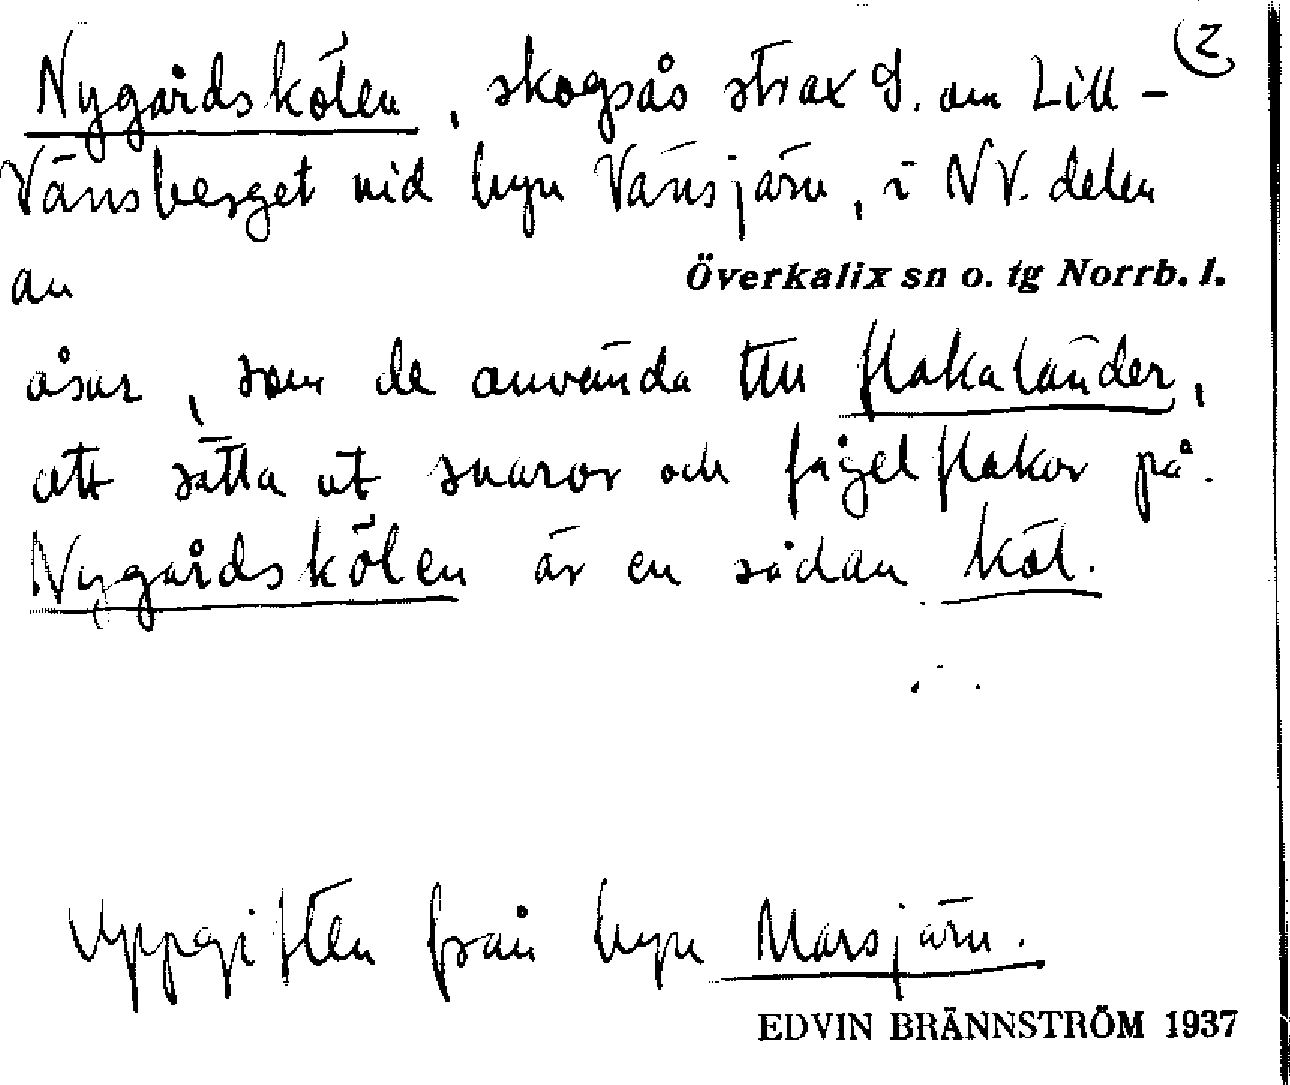 2
Nygårdskölen, skogsås strax S. om Lill-
Vänsberget vid byn Vänsjärv, i NV. delen
av
Överkalix sn o. tg Norrb. l.
åsar, som de använda till flakaländer,
att sätta ut snaror och fågelflakor på.
Nygårdskölen är en sådan köl.
Uppgiften från byn Marsjärv.
EDVIN BRÄNNSTRÖM 1937